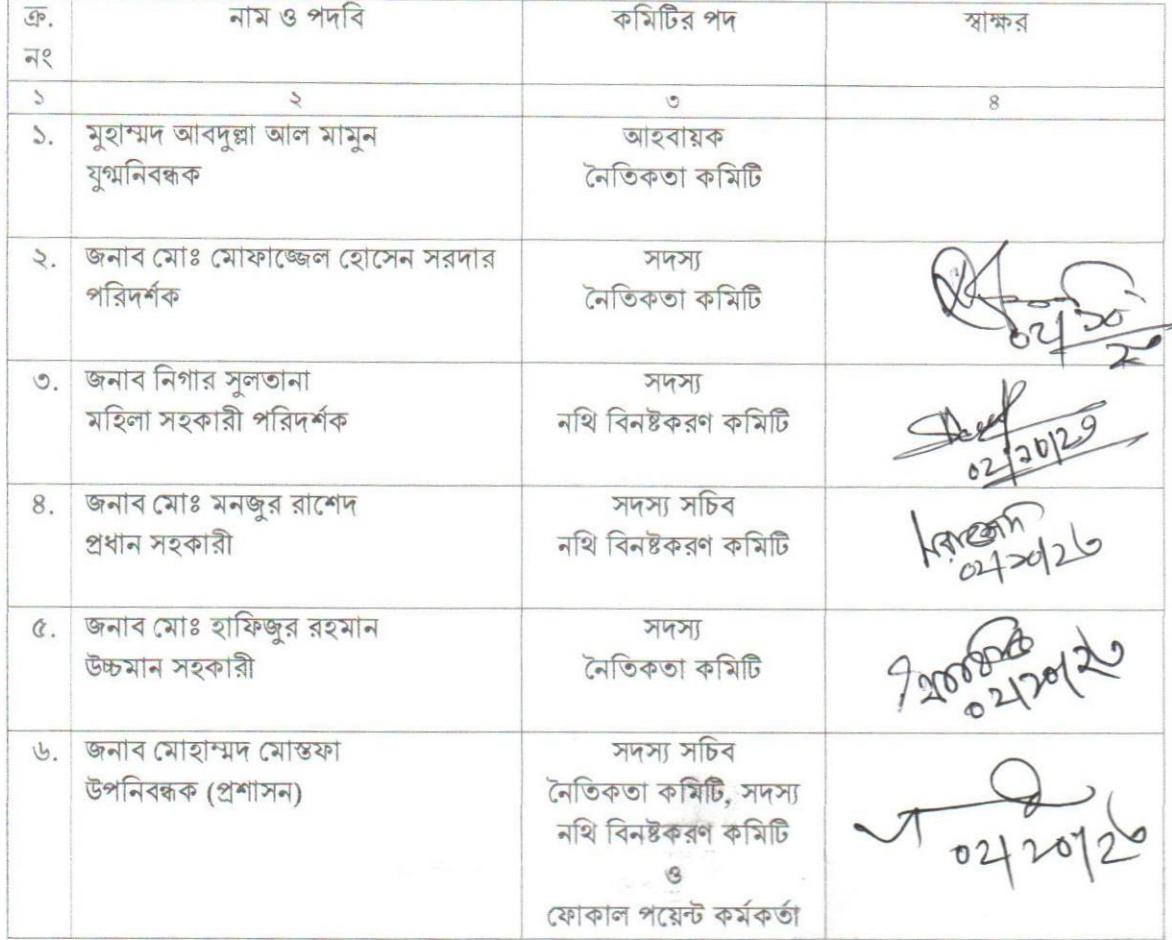 ক্র. নং
নাম ও পদবি
কমিটির পদ
স্বাক্ষর
১
২
৩
৪
১.
মুহাম্মদ আবদুল্লা আল মামুন
যুগ্মনিবন্ধক
আহবায়ক
নৈতিকতা কমিটি
২.
জনাব মোঃ মোফাজ্জেল হোসেন সরদার
পরিদর্শক
সদস্য
নৈতিকতা কমিটি
৩.
জনাব নিগার সুলতানা
মহিলা সহকারী পরিদর্শক
সদস্য
নথি বিনষ্টকরণ কমিটি
৪.
জনাব মোঃ মনজুর রাশেদ
প্রধান সহকারী
সদস্য সচিব
নথি বিনষ্টকরণ কমিটি
৫.
জনাব মোঃ হাফিজুর রহমান
উচ্চমান সহকারী
সদস্য
নৈতিকতা কমিটি
৬.
জনাব মোহাম্মদ মোস্তফা
উপনিবন্ধক (প্রশাসন)
সদস্য সচিব
নৈতিকতা কমিটি, সদস্য
নথি বিনষ্টকরণ কমিটি
ও
ফোকাল পয়েন্ট কর্মকর্তা